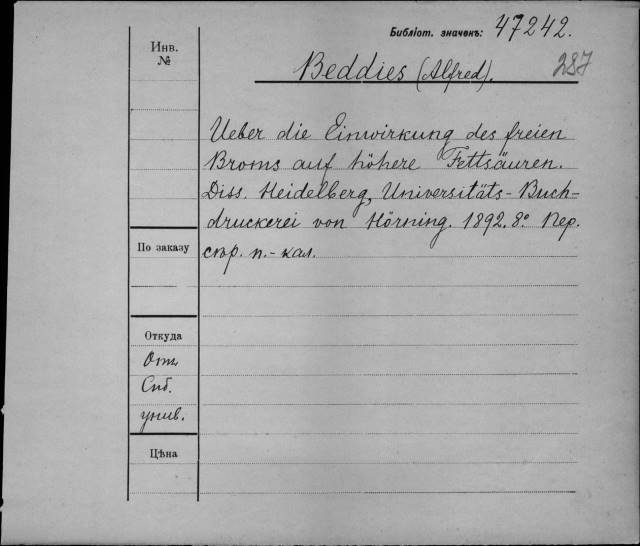 Библіот. значекъ: 47242.
Инв. №
Beddies (Alfred).
287
Ueber die Einwirkung des freien
Broms auf höhere Fettsäuren.
Diss. Heidelberg, Universitäts-Buch-
druckerei von Hörning. 1892. 8º. Пер.
скр. п.-кал.
По заказу
Откуда
Отъ
Спб.
унив.
Цѣна